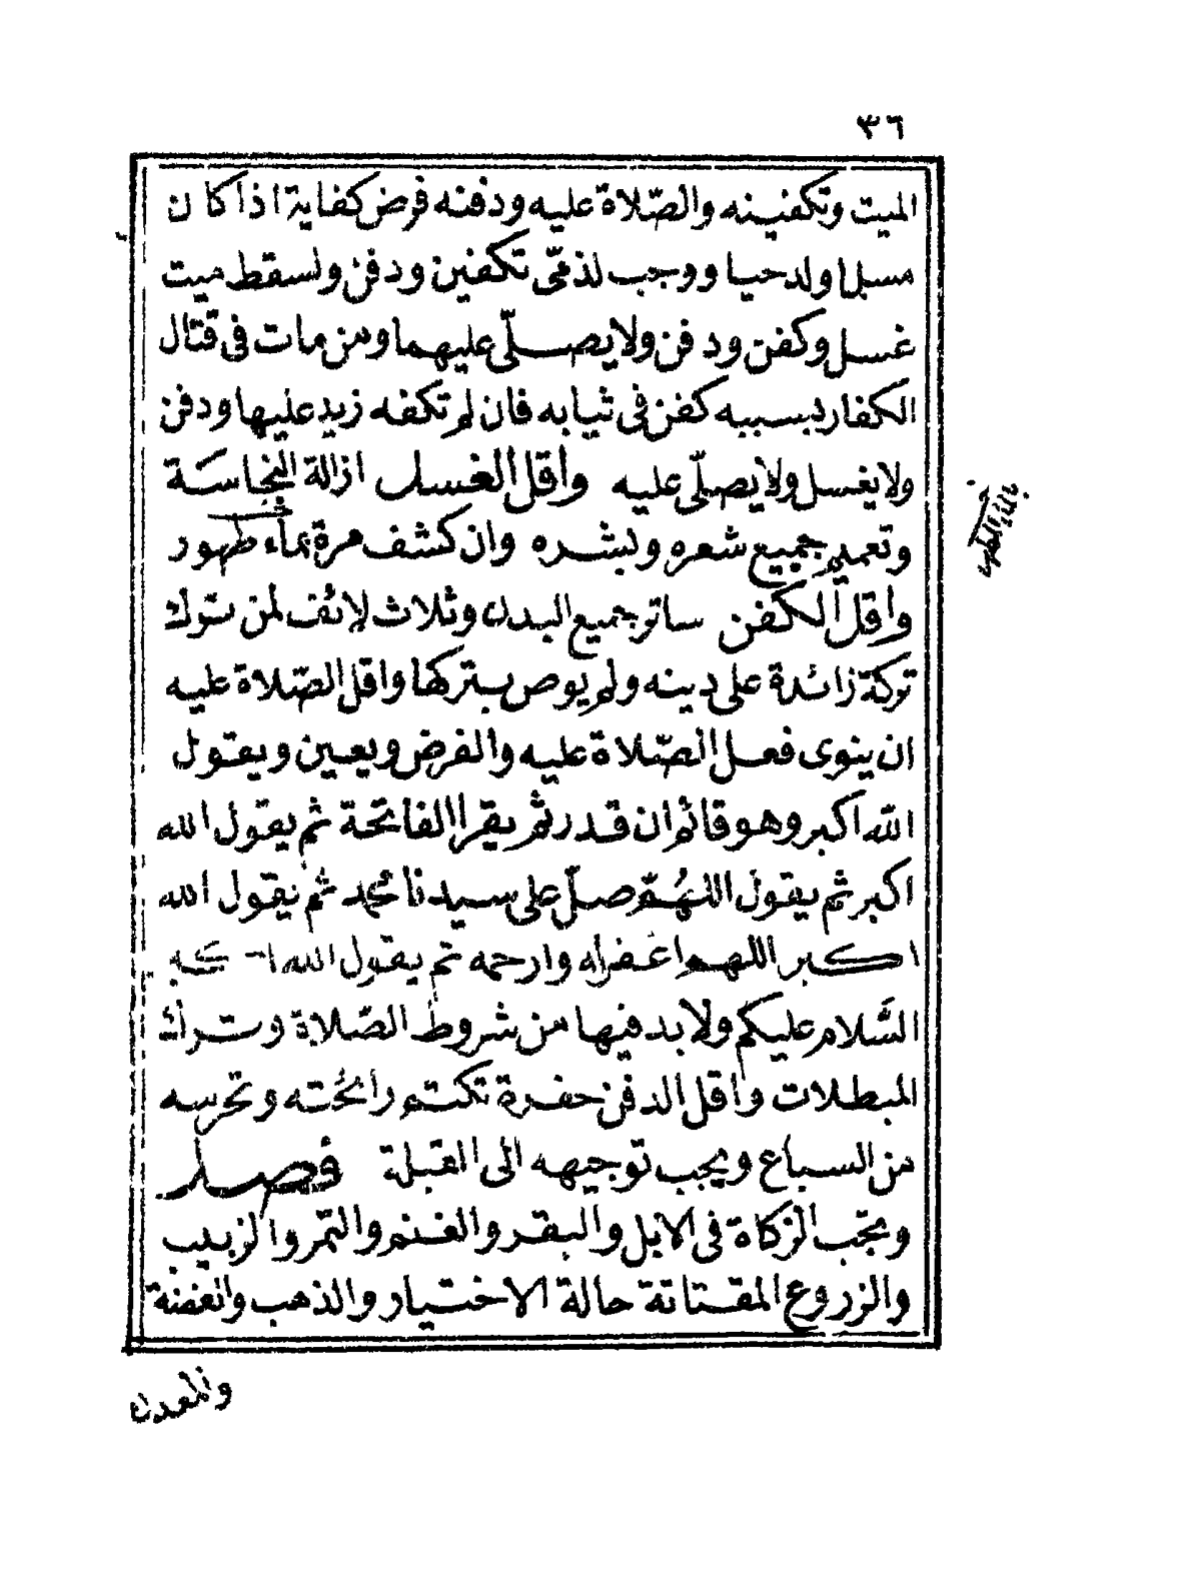 ٣٦
الميت وتكفينه والصّلاة عليه ودفنه فرض كفاية اذا كان
مسلما ولد حيا ووجب لذمّى تكفين ودفن ولسقط ميت
غسل وكفن ودفن ولا يصلّى عليهما ومن مات فى قتال
الكفار بسببه كفن فى ثيابه فان لم تكفه زيد عليها ودفن
ولا يغسل ولا يصلّى عليه واقل الغسل ازالة النجاسة
وتعميم جميع شعره وبشره وان كشف مرة بماء طهور
واقل الكفن ساتر جميع البدن وثلاث لائف لمن ترك
تركة زائدة على دينه ولم يوص بتركها واقل الصّلاة عليه
ان ينوى فعل الصّلاة عليه والفرض ويعين ويقول
الله اكبر وهو قائم ان قدر ثم يقرا الفاتحة ثم يقول الله
اكبر ثم يقول اللهُمّ صلّ على سيدنا محمد ثم يقول الله
اكبر اللهم اغفر له وارحمه ثم يقول الله
السَّلام عليكم ولا بد فيها من شروط الصّلاة وترك
المبطلات واقل الدفن حفرة تكتم رائحته وتحرسه
من السباع ويجب توجيهه الى القبلة فصل
وتجب الزكاة فى الابل والبقر والغنم والتمر والزبيب
والزروع المقتاتة حالة الاختيار والذهب والفضة
والمعدن